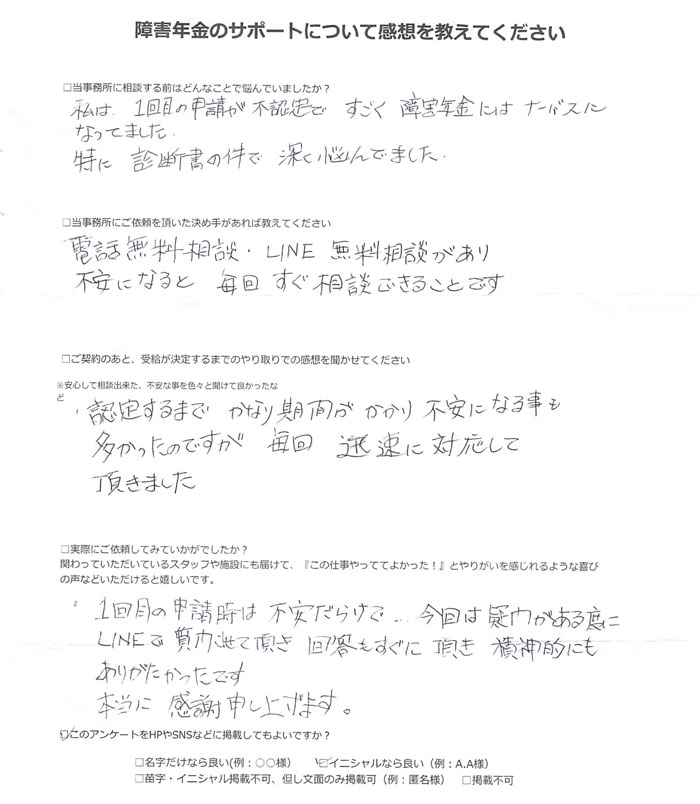 障害年金のサポートについて感想を教えてください
□当事務所に相談する前はどんなことで悩んでいましたか？
私は、1回目の申請が不認定で すごく 障害年金には ナーバスに
なってました.
特に 診断書の件で 深く悩んでました.
□当事務所にご依頼を頂いた決め手があれば教えてください
電話無料相談・LINE 無料相談があり
不安になると 毎回 すぐ相談できることです
□ご契約のあと、受給が決定するまでのやり取りでの感想を聞かせてください
※安心して相談出来た、不安な事を色々と聞けて良かったな
ど
認定するまで かなり期間が かかり 不安になる事も
多かったのですが 毎回 迅速に対応して
頂きました
□実際にご依頼してみていかがでしたか？
関わっていただいているスタッフや施設にも届けて、『この仕事やっててよかった！』とやりがいを感じれるような喜び
の声などいただけると嬉しいです。
1回目の申請時は 不安だらけで… 今回は疑問がある度に
LINEで質問させて頂き 回答もすぐに 頂き 精神的にも
ありがたかったです
本当に 感謝申し上げます。
☑このアンケートをHPやSNSなどに掲載してもよいですか？
□名字だけなら良い(例：○○様） ☑イニシャルなら良い（例：A.A様）
□苗字・イニシャル掲載不可、但し文面のみ掲載可（例：匿名様） □掲載不可